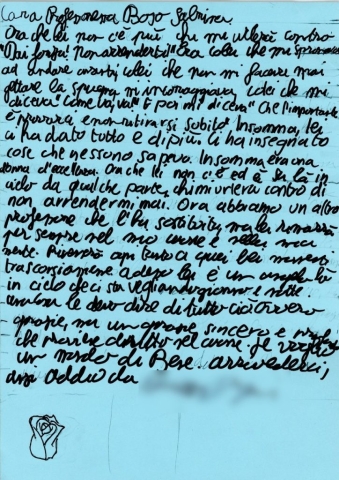 Cara Professoressa Bojo Sabrina,
Ora che lei non c'è più chi mi urlerà contro
"Dai forza! Non arrenderti" Era colei che mi spronava
ad andare avanti colei che non mi faceva mai
gettare la spugna mi incoraggiava, colei che mi
diceva "Come va, va" E poi mi diceva" Che l'importante
è provare e non ritirarsi subito. Insomma, lei
ci ha dato tutto e di più. Ci ha insegnato
cose che nessuno sapeva. Insomma era una
donna d'eccellenza. Ora che lei non c'è ed è su là in
cielo da qualche parte, chi mi urlerà contro di
non arrendermi mai. Ora abbiamo un altro
professore che l'ha sostituita, ma lei rimarrà
per sempre nel mio cuore e nella mia
mente. Ripenserò a quei bei momenti
trascorsi insieme a lei è un angelo là
in cielo che ci sta vegliando giorno e notte.
le devo dire di tutto ciò
grazie, ma un grazie sincero e
che proviene dal cuore. le voglio
un mondo di Bene. arrivederci,
anzi addio da